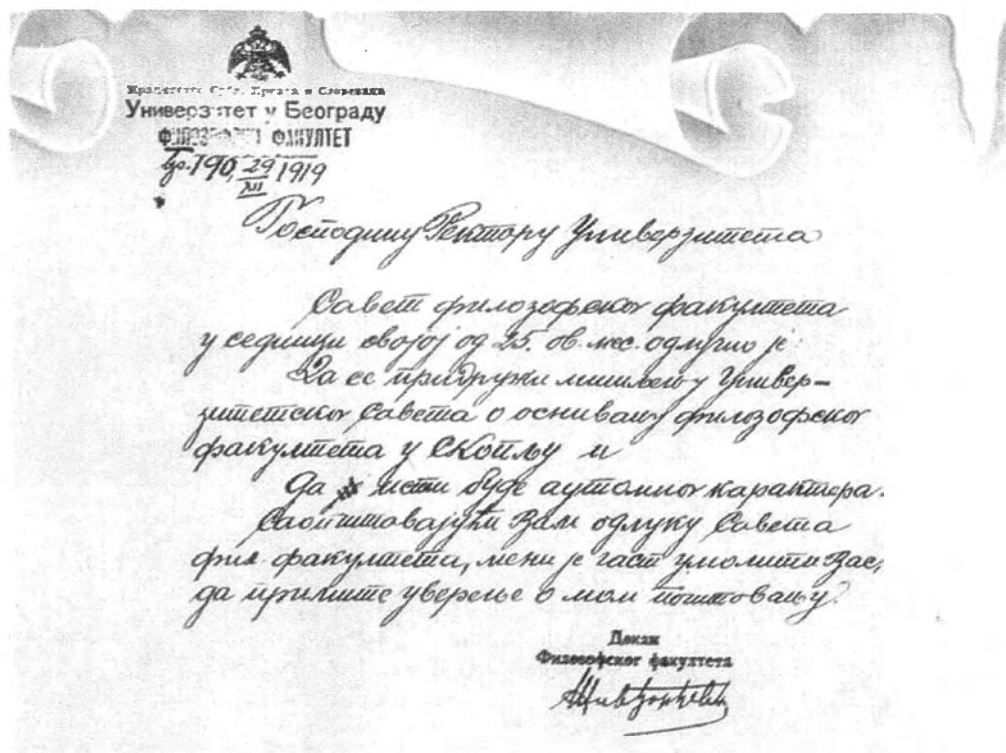 Краљевство Срба, Хрвата и Словенаца
Универзитет у Београду
ФИЛОЗОФСКИ ФАКУЛТЕТ
190, 29/XII 1919
Господину Ректору Универзитета
Савет филозофског факултета
у седници својој од 25. ов. мес. одлучио је:
Да се придружи мишљењу Универ-
зитетског Савета о оснивању филозофског
факултета у Скопљу и
Да исти буде аутомног карактера.
Саопштовајући Вам одлуку Савета
фил. факултета, мени је част умолити Вас,
да примите уверење о мом поштовању.
Декан
Филозофског факултета